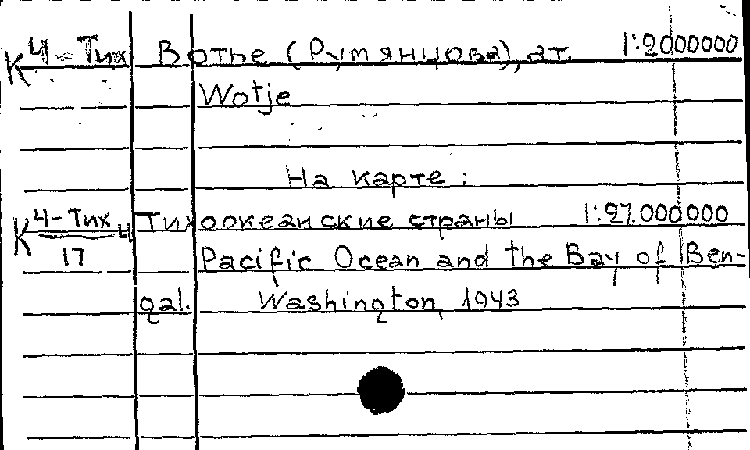 К 4-Тих Вотье (Румянцова), ат. 1:2000000
Wotje
На карте:
К 4-Тих 4 Тихоокеанские страны 1:27.000000
17 Pacific Ocean and the Bay of Ben-
gal. Washington, 1943